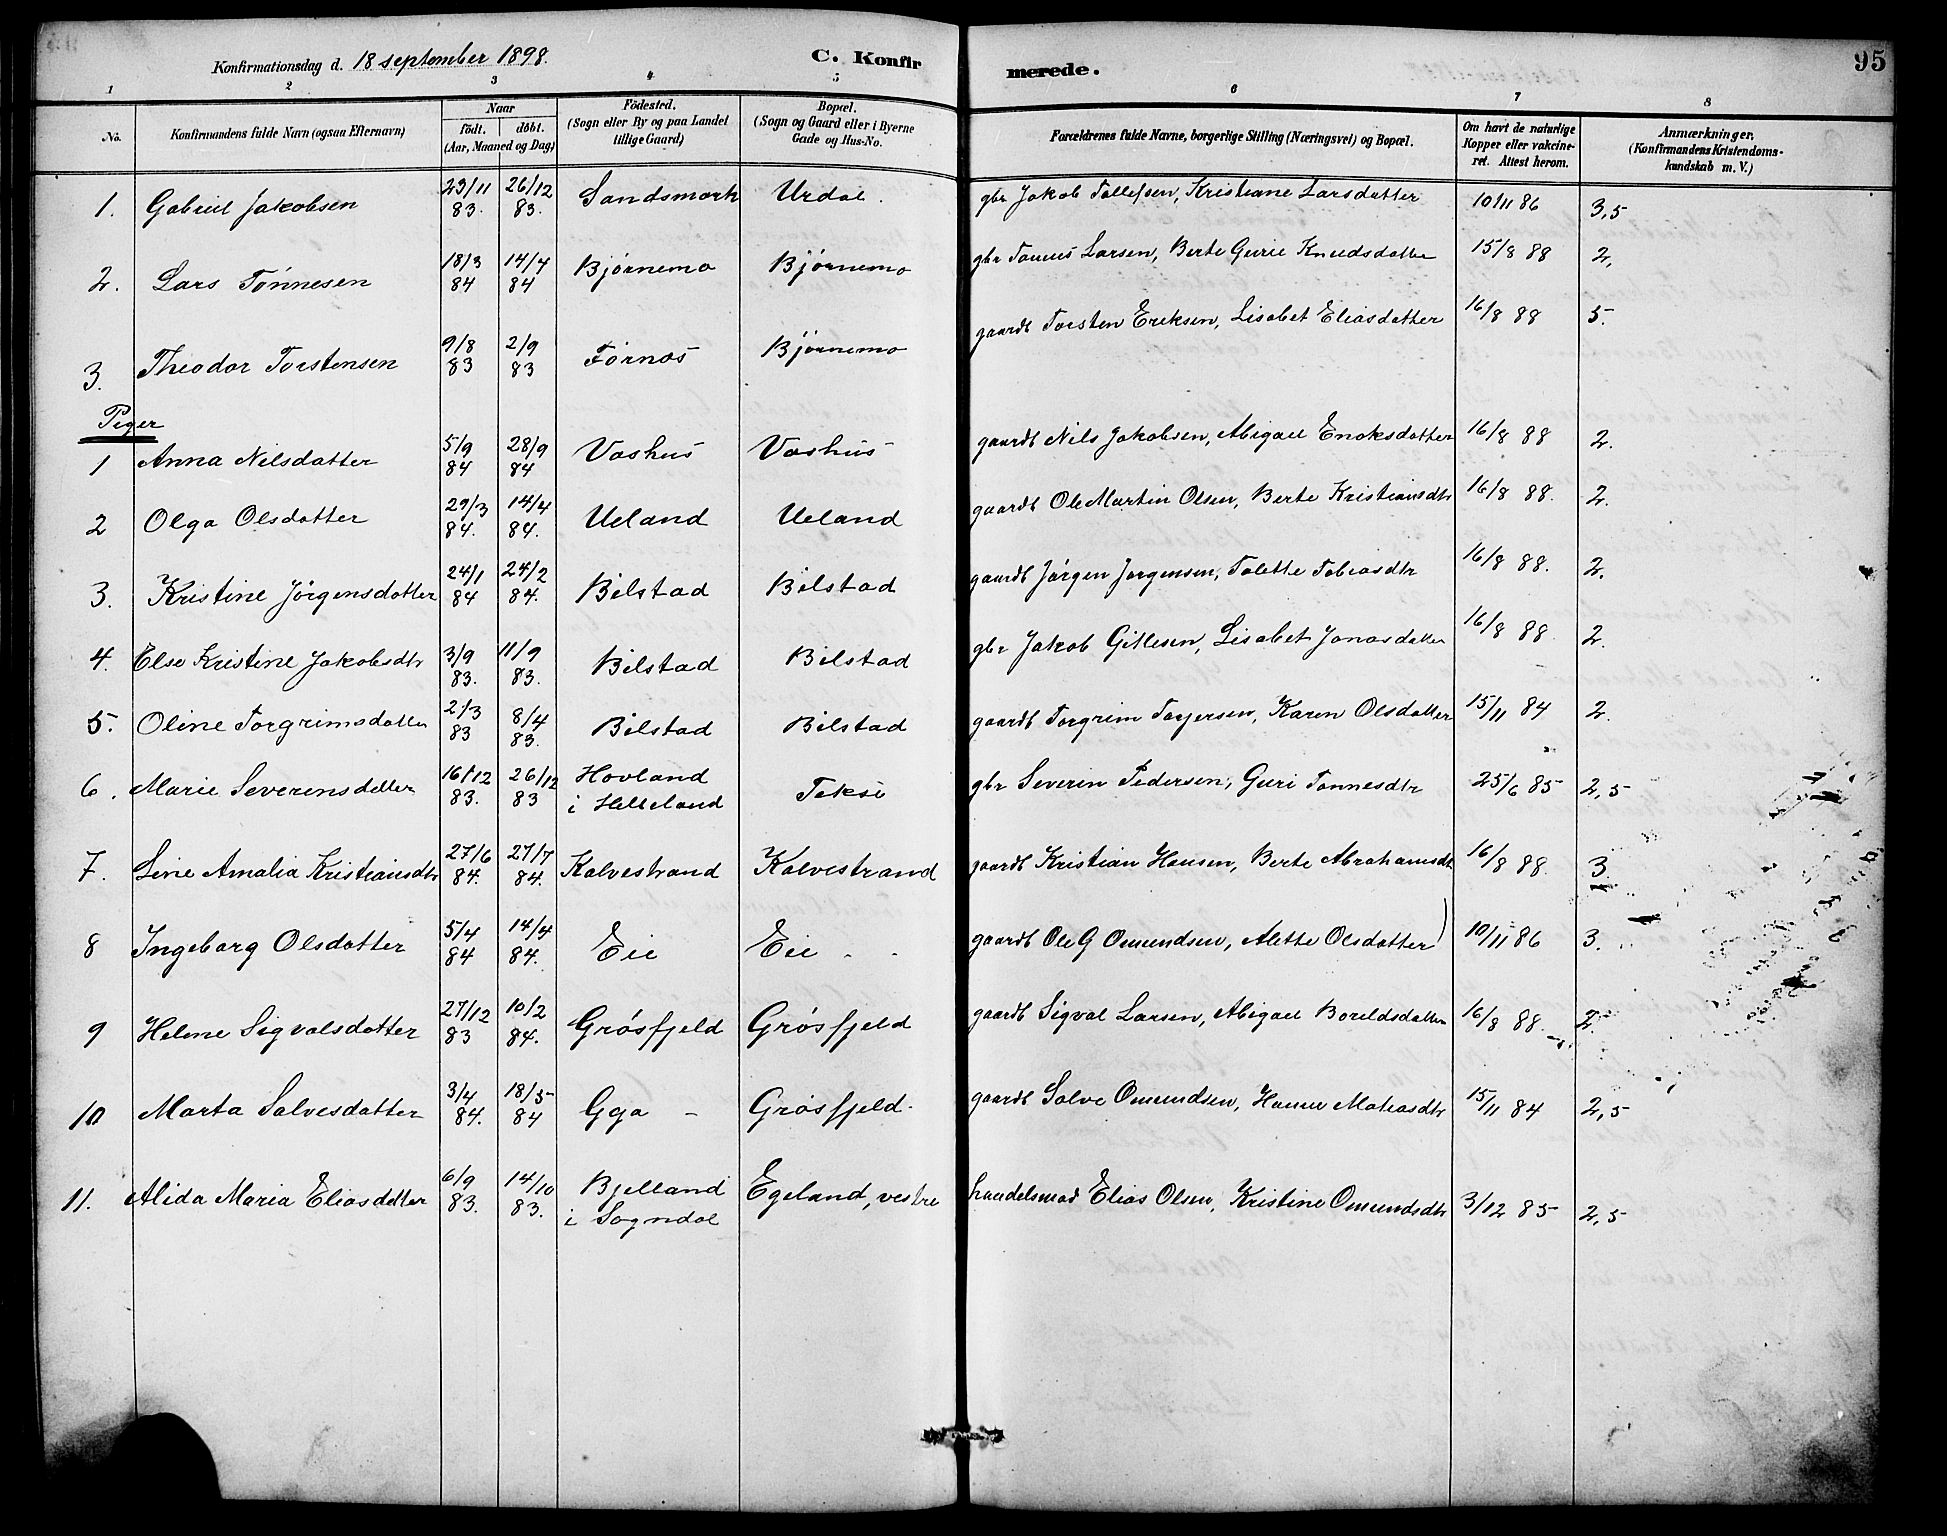 95
Konfirmationsdag d. 18 september 1898. C. Konfirmerede.
1 2 3 4 5 6 7 8
No. Konfirmandens fulde Navn (ogsaa Efternavn) Naar født. døbt. (Aar, Maaned og Dag) Fødested. (Sogn eller By og paa Landet tillige Gaard) Bopæl. (Sogn og Gaard eller i Byerne Gade og Hus-No. Forældrenes fulde Navne, borgerlige Stilling (Næringsvei) og Bopæl. Om havt de naturlige Kopper eller vakcineret. Attest herom. Anmærkninger. (Konfirmandens Kristendomskundskab m. V.)
1. Gabriel Jakobsen 29/11 83. 26/12 83. Sandsmark Urdal. gbr Jakob Tollefsen, Kristiane Larsdatter 10/11 86 3,5
2. Lars Tønnesen 18/3 84 14/4 84 Bjørnemo Bjørnemo gbr Tønnes Larsen, Berte Gurie Knudsdatter 15/8 88 2,
3. Theodor Torstensen 9/8 83 2/9 83 Førnes Bjørnemo gaardb Torsten Eriksen, Lisabet Eliasdatter 16/8 88 5.
Piger
1 Anna Nilsdatter 5/9 84 28/9 84 Vashus Vashus gaardb Nils Jakobsen, Abigael Enoksdatter 16/8 88 2.
2 Olga Olsdatter 29/3 84. 14/4 84. Ueland Ueland gaardb Ole Martin Olsen, Berte Kristiansdtr 16/8 88. 2.
3. Kristine Jørgensdatter 24/1 84 24/2 84. Bilstad Bilstad gaardb Jørgen Jørgensen, Tolette Tobiasdtr 16/8 88. 2.
4. Else Kristine Jakobsdtr 3/9 83. 11/9 83. Bilstad Bilstad gbr Jakob Gitlesen, Lisabet Jonasdatter 16/8 88. 2.
5. Oline Torgrimsdatter 2/3 83 8/4 83. Bilstad Bilstad gaardb Torgrim Torjersen, Karen Olsdatter 15/11 84 2.
6. Marie Severinsdatter 16/12 83. 26/12 83 Hovland i Helleland Teksé gbr Severin Pedersen, Guri Tønnesdtr 25/6 85 2,5
7. Line Amalia Kristiansdtr 27/6 84. 27/7 84. Kalvestrand Kalvestrand gaardb Kristian Hansen, Berte Abrahamsdt 16/8 88. 3
8 Ingeborg Olsdatter 5/4 84 14/4 84. Eie Eie gaardb Ole G Omundsen, Alette Olsdatter 10/11 86 3.
9 Helene Sigvalsdatter 27/12 83 10/2 84. Grøsfjeld Grøsfjeld gaardb Sigval Larsen, Abigael Boreldsdatter 16/8 88. 2.
10 Marta Salvesdatter 3/4 84. 18/5 84 Gya - Grøsfjeld. gaardb Salve Omundsen, Hanne Matiasdtr 15/11 84 2,5
11. Alida Maria Eliasdatter 6/9 83. 14/10 83. Bjelland i Sogndal Egeland, vestre handelsmad Elias Olsen, Kristine Omundsdtr 3/12 85 2,5